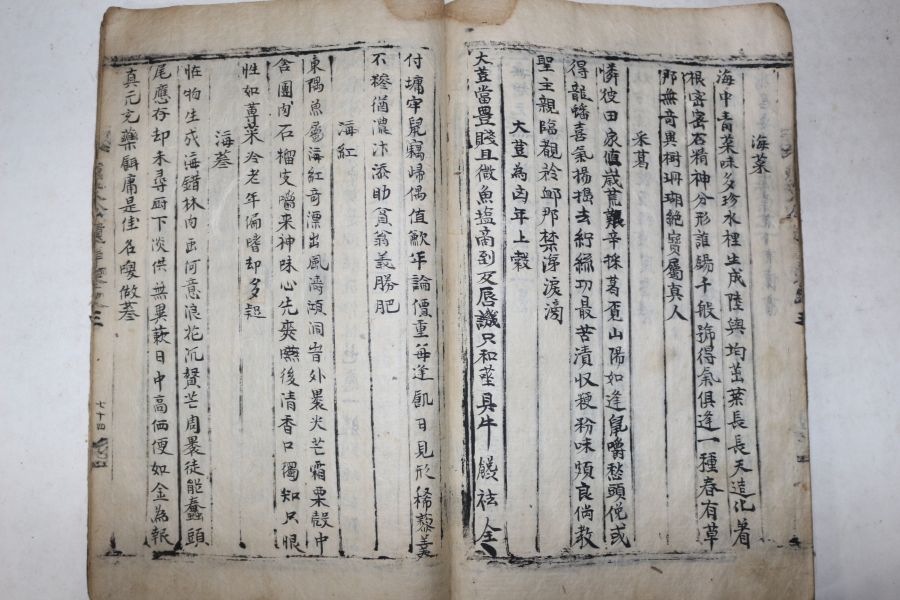 海菜
海中青菜味多珍水裡生成陸與均茁葉長長天造化着
根密密石精神分形誰錫千般號得氣俱逢一種春有草
那無奇異樹珊瑚絶寶屬真人
采葛
憐彼田家値歲荒艱辛採葛萬山陽如逢鼠嚼愁頭俛或
得龍蟠喜氣揚搗去紛絲功最苦漬収粳粉味頗良倘教
聖主親臨覩衿邮那禁淳淚滂
大荳為凶年上穀
大荳當豊賤且微魚塩商到反唇譏只和莝具牛餕祛全
付墉牢鼠竊歸偶值歉年論價重每逢飢日見形稀藜羹
不糝循濃汁添助貧翁義勝肥
海紅
東隅魚屬海紅奇漂出風濤澒洞旹外裹尖芒霜栗殼中
含團肉石榴皮嚼來神味心先爽嚥後清香口獨知只恨
性如蓴菜冷老年偏嗜却多疑
海蔘
恠物生成海錯林肉函何意浪花沉蝥芒周裹徒能蠢頭
尾應存却未尋厨下淡供無異蔌日中高価便如金為報
真元充藥餌庸是佳名嘐做蔘
三
七十四